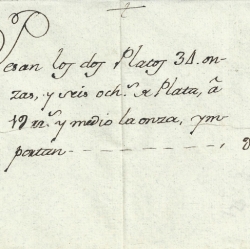 Pesan los dos Platos 34. on-
zas, y seis och.s de Plata, â
19 rr.s y medio la onza, ym-
portan - - - - - - - - - - - ,